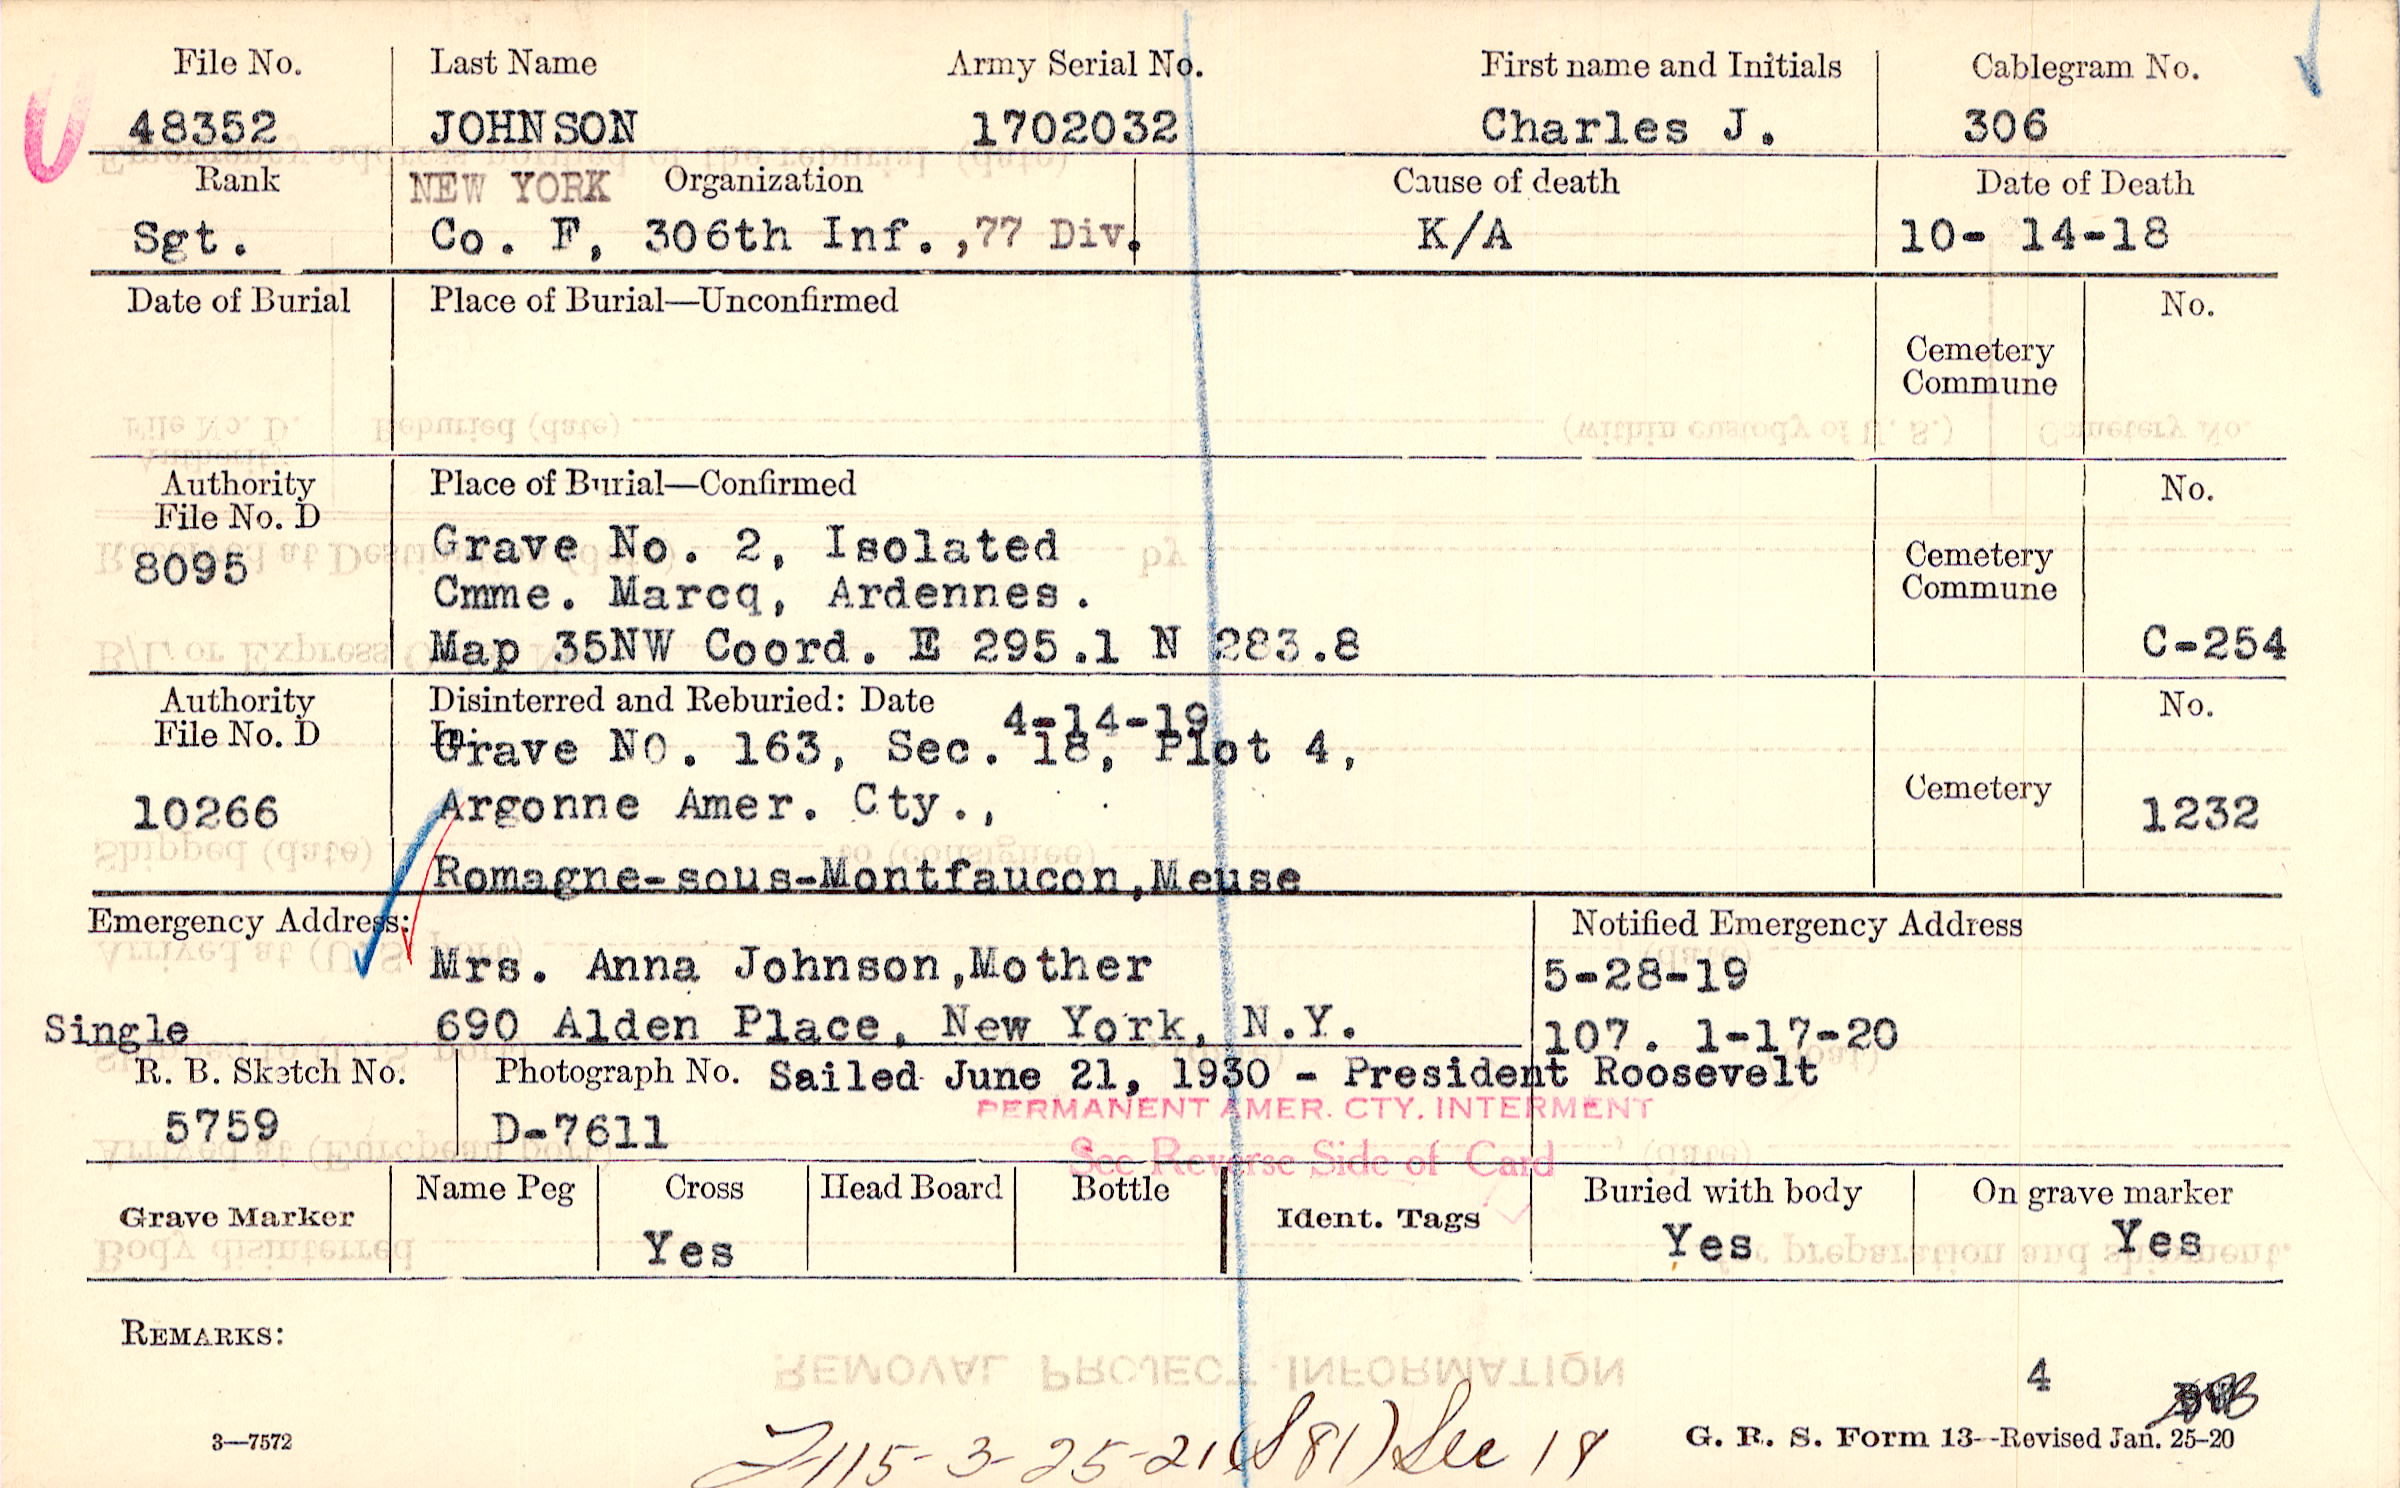 File No. Last Name Army Serial No. First name and Initials Cablegram No.
48352 JOHNSON 1702032 Charles J. 306
Rank NEW YORK Organization Cause of death Date of Death
Sgt. Co. F, 306th Inf.,77 Div. K/A 10- 14-18
Date of Burial Place of Burial—Unconfirmed No.
Cemetery
Commune
File No. D. Reburied (date) (within custody of U. S.) Cemetery No.
Authority Place of Burial—Confirmed No.
File No. D
Grave No. 2, Isolated
8095 Cemetery
Commune
Cmme. Marcq, Ardennes.
Map 35NW Coord. E 295.1 N 283.8 C-254
Authority Disinterred and Reburied: Date 4-14-19 No.
File No. D In
Grave NO. 163, Sec. 18, Plot 4,
10266 Argonne Amer. Cty., Cemetery 1232
Shipped (date) to (consignee)
Romagne-sous-Montfaucon,Meuse
Emergency Address: Notified Emergency Address
Mrs. Anna Johnson,Mother 5-28-19
Single 690 Alden Place, New York, N.Y. 107. 1-17-20
R. B. Sketch No. Photograph No. Sailed June 21, 1930 - President Roosevelt
PERMANENT AMER. CTY. INTERMENT
5759 D-7611
See Reverse Side of Card
Grave Marker Name Peg Cross Head Board Bottle Ident. Tags Buried with body On grave marker
Yes Yes Yes
Body disinterred preparation and shipment.
REMARKS:
REMOVAL PROJECT INFORMATION
4
3—7572 115-3-25-21 (S81) Sec 18 G. R. S. Form 13--Revised Jan. 25-20